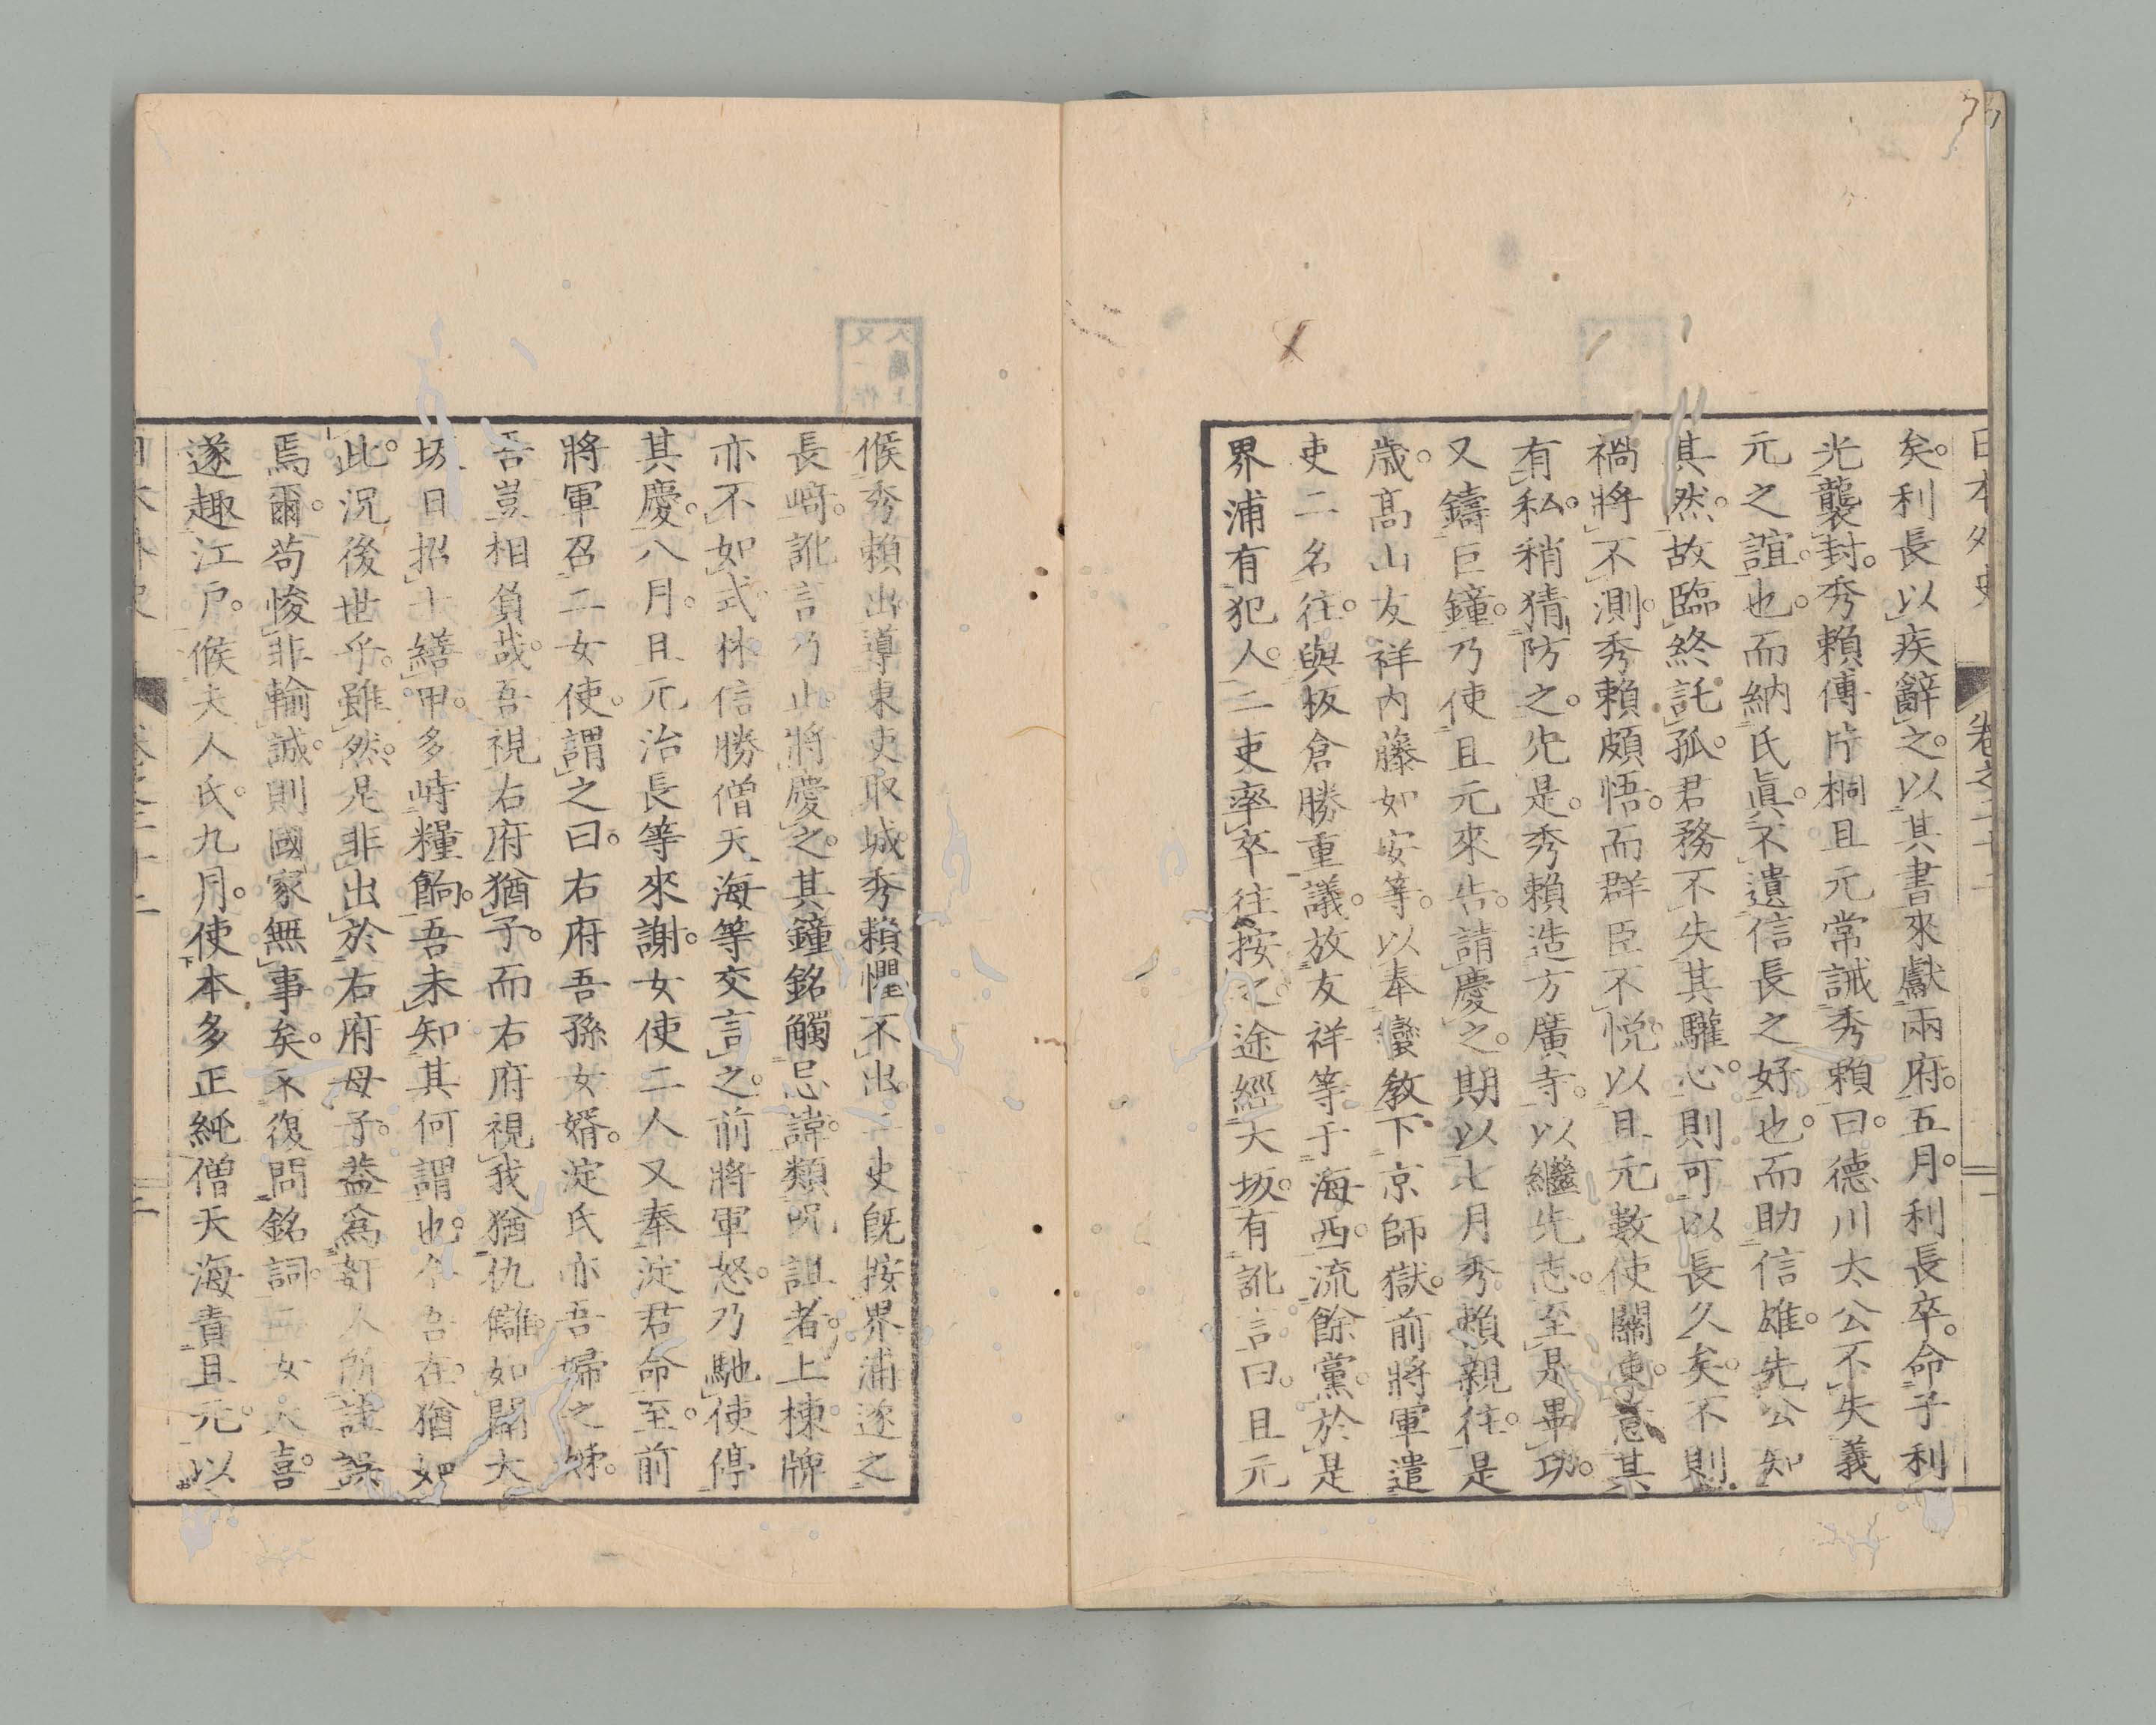 日本外史 卷之二十二
矣。利長以疾辭之。以其書來獻兩府。五月。利長卒。命子利
光襲封。秀賴傅片桐且元常誡秀賴曰。德川太公不失義
元之誼也。而納氏眞。不遺信長之好也。而助信雄。先公知
其然。故臨終託孤。君務不失其驩心。則可以長久矣。不則
禍將不測。秀賴頗悟。而群臣不悦。以且元數使關東。意其
有私。稍猜防之。先是。秀賴造方廣寺。以繼先志。至是畢功。
又鑄巨鐘。乃使且元來告。請慶之。期以七月秀賴親往。是
歳。高山友祥内藤如安等。以奉蠻敎下京師獄。前將軍遣
吏二名往。與板倉勝重議。放友祥等于海西。流餘黨。於是
界浦有犯人。二吏率卒往按之。途經大坂。有訛言曰。且元
候秀賴出。導東吏取城。秀賴懼不出。二吏既按界浦。遂之
長﨑。訛言乃止。將慶之。其鐘銘觸忌諱。類呪詛者。上棟牌
亦不如式。林信勝僧天海等交言之。前將軍怒。乃馳使停
其慶。八月。且元治長等來謝。女使二人又奉淀君命至。前
將軍召二女使。謂之曰。右府吾孫女婿。淀氏亦吾婦之姊。
吾豈相負哉。吾視右府猶子。而右府視我猶仇讎。如聞大
坂日招士繕甲。多峙糧餉。吾未知其何謂也。今吾在。猶如
此。況後世乎。雖然。是非出於右府母子。蓋爲奸人所詿誤
焉爾。苟悛非輸誠。則國家無事矣。不復問銘詞。二女大喜。
遂趣江戶。候夫人氏。九月。使本多正純僧天海責且元。以
日本外史 卷之二十二 二